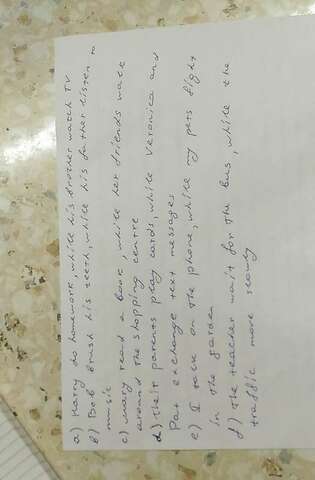 a) Harry do homework, while his brother watch TV
b) Bob brush his teeth, while his father listen to
music
c) Mary read a book, while her friends walk
around the shopping centre
d) Their parents play cards, while Veronica and
Pat exchange text messages
e) I talk on the phone, while my pets fight
in the garden
f) The teacher wait for the bus, while the
traffic move slowly